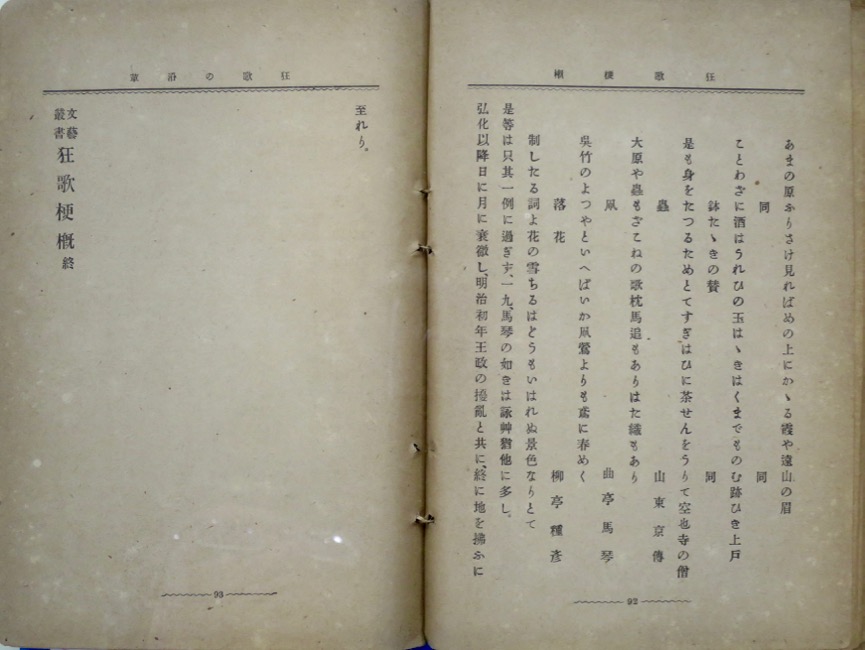 狂歌梗概
あまの原ふりさけ見ればめの上にかゝる霞や遠山の眉
同　同
ことわざに酒はうれひの玉はゝきはくまでものむ跡ひき上戸
鉢たゝきの賛　同
是も身をたつるためとてすぎはひに茶せんをうりて空也寺の僧
蟲　山東京傳
大原や蟲もざこねの歌枕馬追もありはた織もあり
凧　曲亭馬琴
呉竹のよつやといへばいか凧鶯よりも鳶に春めく
落花　柳亭種彦
制したる詞よ花の雪ちるはどうもいはれぬ景色なりとて
是等は只其一例に過ぎず、一九、馬琴の如きは詠艸猶他に多し。
弘化以降日に月に衰微し、明治初年王政の擾亂と共に、終に地を拂ふに
92
狂歌の沿革
至れり。
文藝叢書 狂歌梗概 終
93